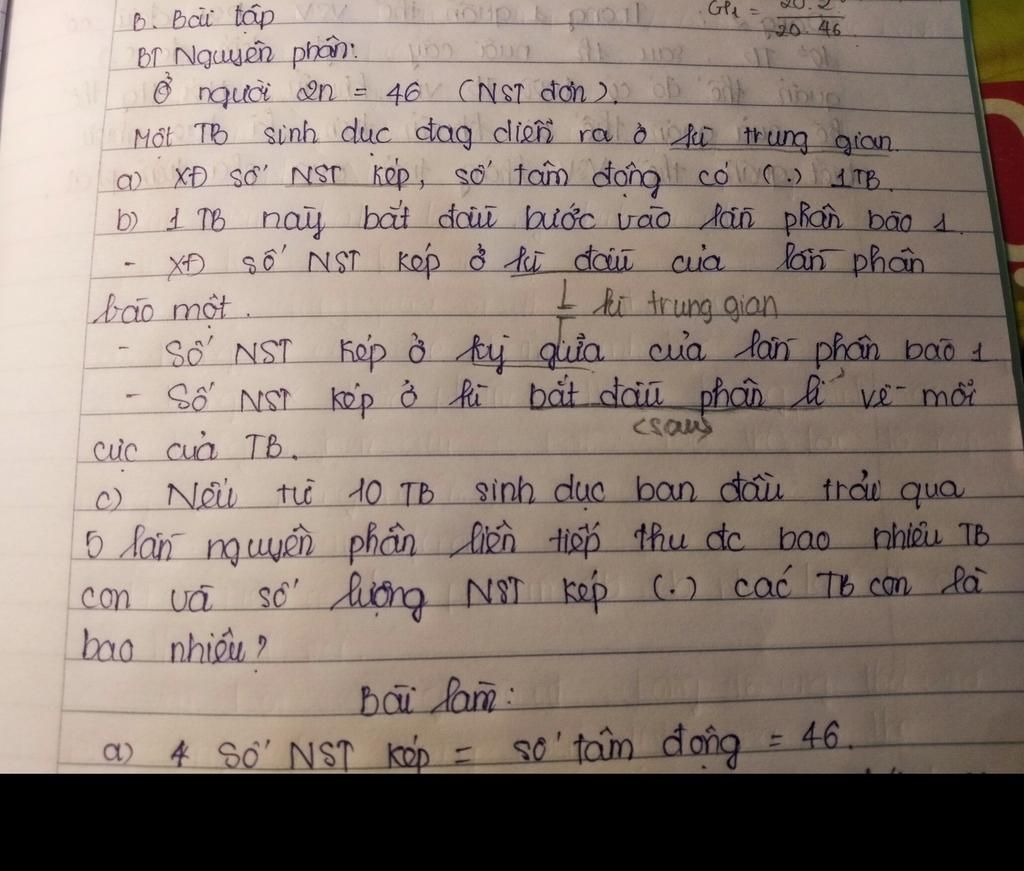 B. Bài tập
GP1 = 20.2 / 20.46
BT Nguyên phân:
Ở người 2n = 46 (NST đơn).
Một TB sinh dục đag diễn ra ở kì trung gian.
a) XĐ số NST kép, số tâm động có (.) 1TB.
b) 1 TB này bắt đầu bước vào lần phân bào 1.
- XĐ số NST kép ở kì đầu của lần phân
bào một.
kì trung gian
- Số NST kép ở kỳ giữa của lần phân bào 1
- Số NST kép ở kì bắt đầu phân li về mỗi
(sau)
cực của TB.
c) Nếu từ 10 TB sinh dục ban đầu trải qua
5 lần nguyên phân liên tiếp thu đc bao nhiêu TB
con và số lượng NST kép (.) các TB con là
bao nhiêu?
Bài làm:
a) Số NST kép = số tâm động = 46.